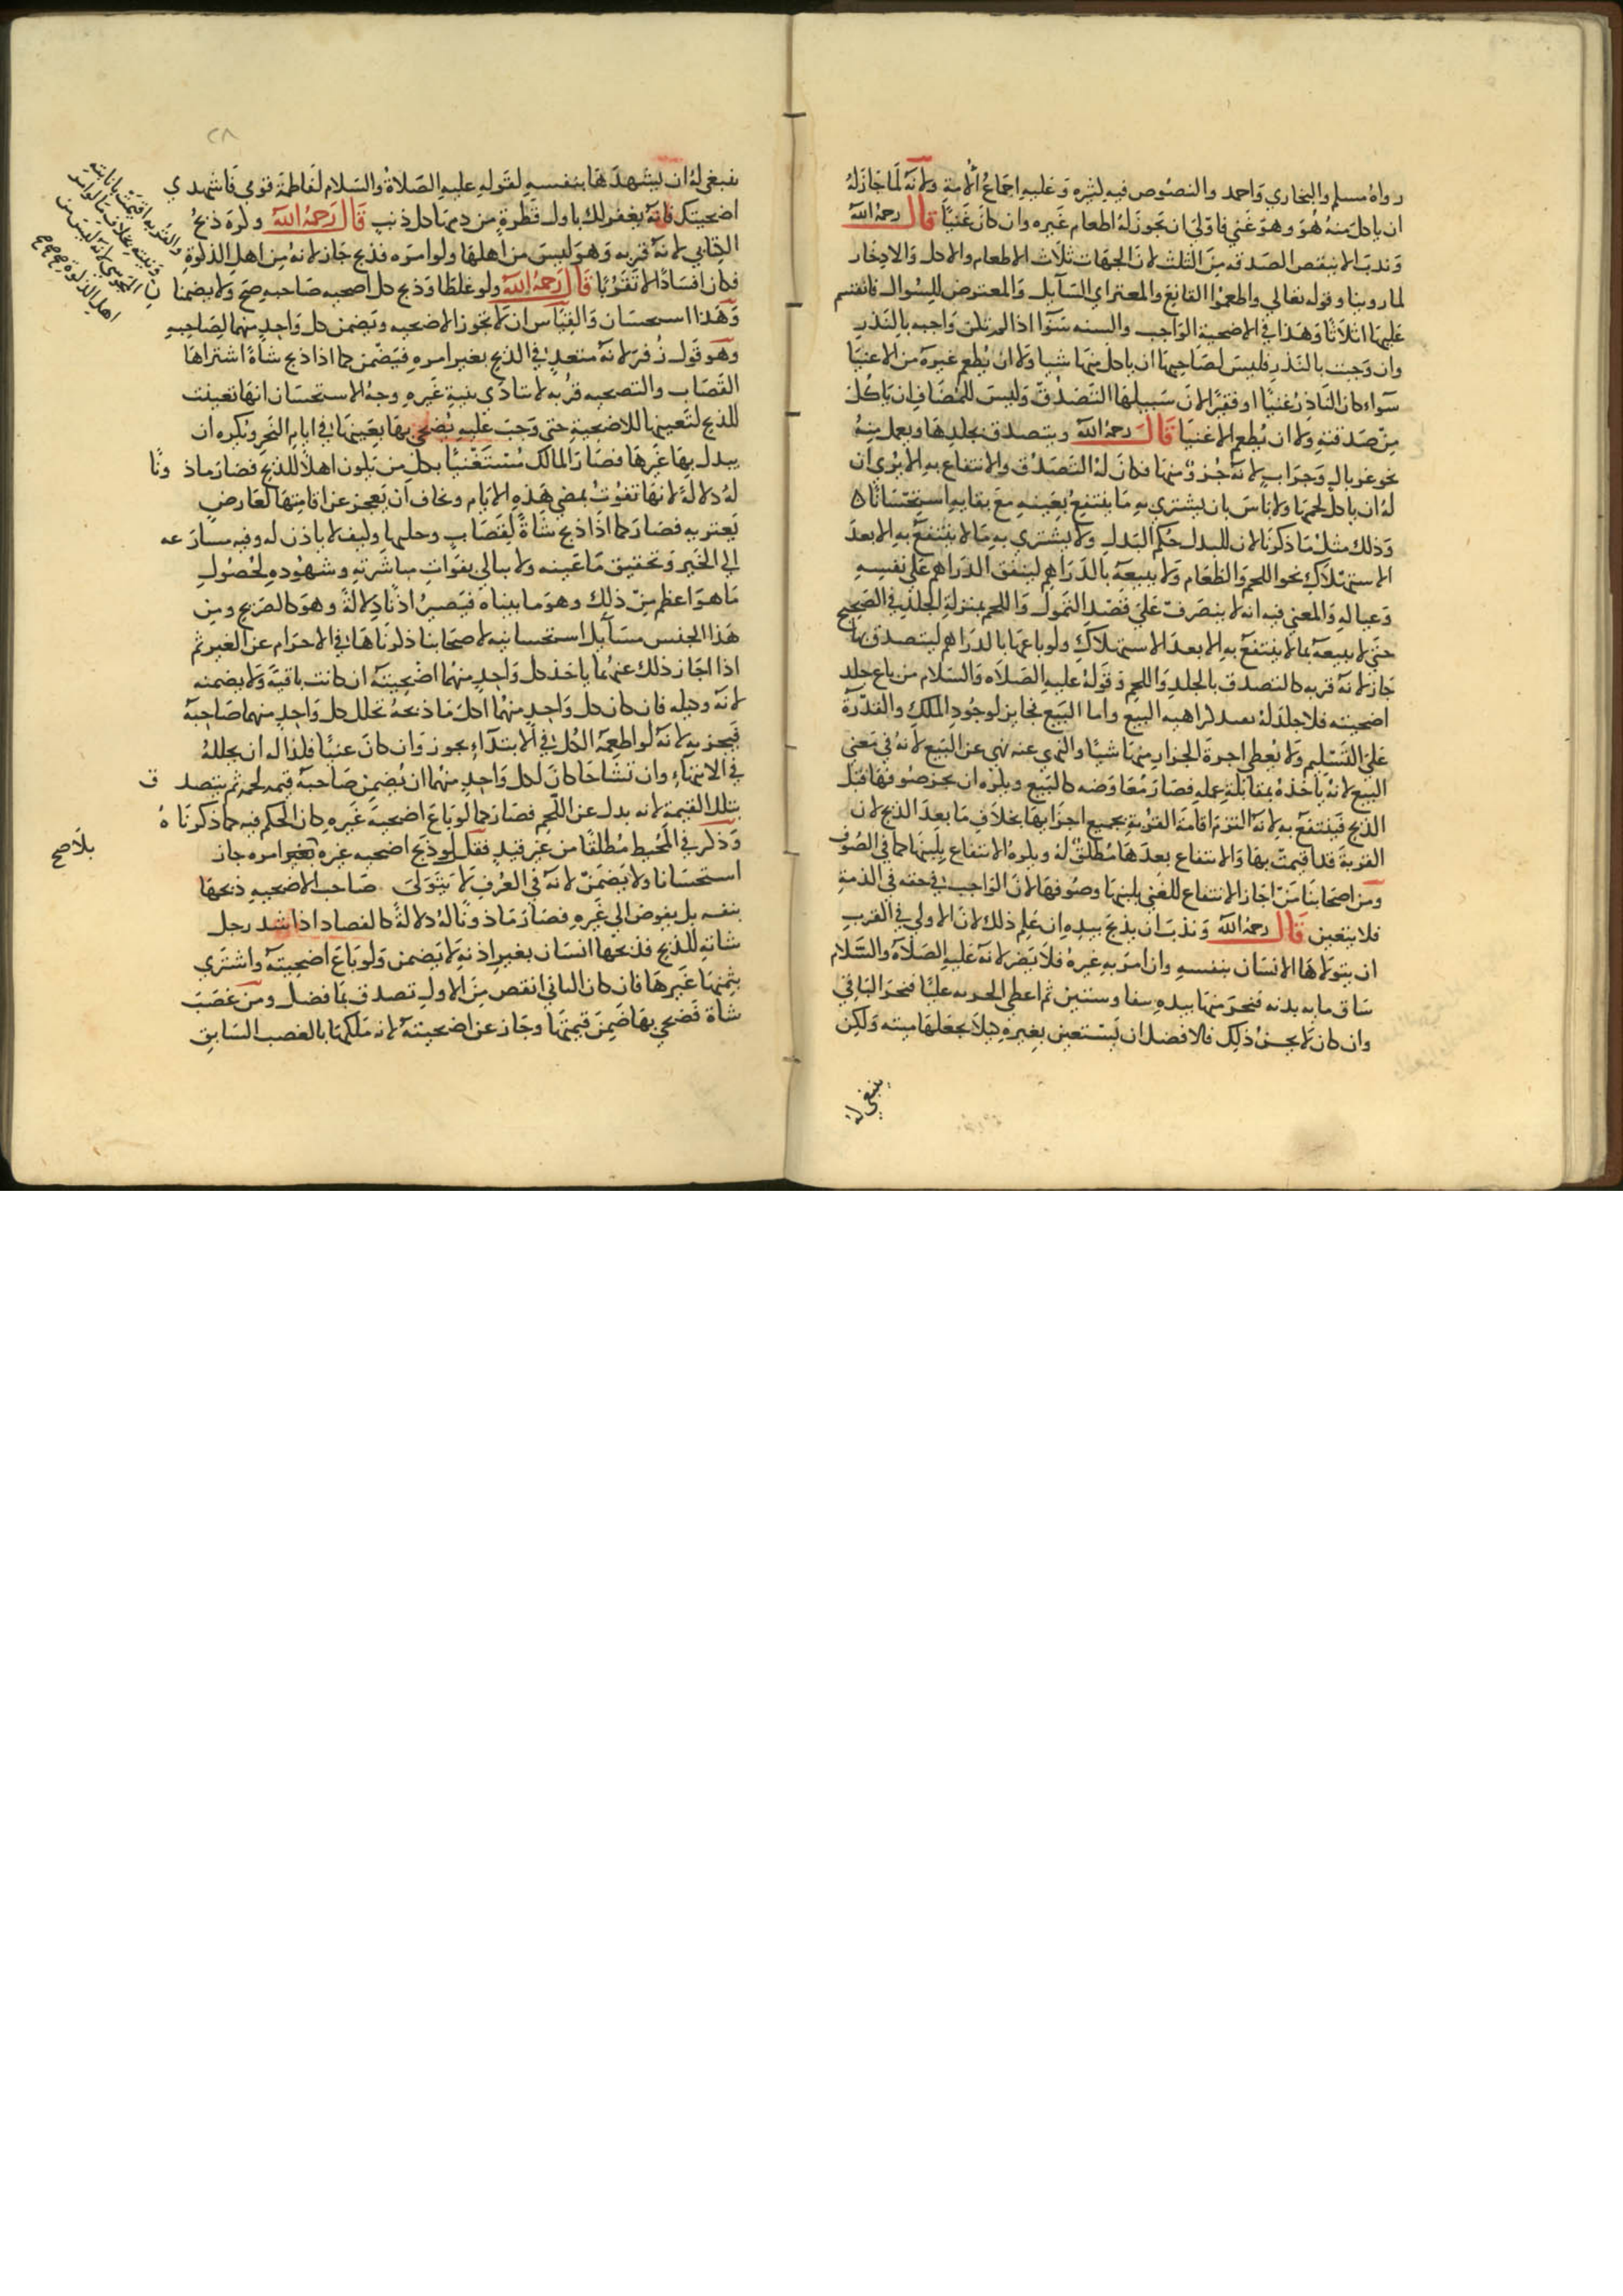 رواه مسلم والبخاري واحمد والنصوص فيه كثيره وعليه اجماع الامة ولانه لما جاز له
ان ياكل منه هو وهو غني فاولى ان يجوز له اطعام غيره وان كان غنيا قال رحمه الله
وندب الا ينقص الصدقه من الثلث لان الجهات ثلاث الاطعام والاكل والادخار
لما روينا وقوله تعالي واطعموا القانع والمعتر اي السآيل والمعترض للسوال فانقسم
عليها اثلاثا وهذا في الاضحية الواجب والسنه سوا اذا لم تكن واجبه بالنذر
وان وجبت بالنذر فليس لصاحبها ان ياكل منها شيا ولا ان يطعم غيره من الاغنيا
سواء كان الناذر غنيا او فقيرا لان سبيلها التصدق وليس للمتصدق ان ياكل
من صدقته ولا ان يطعم الاغنيا قال رحمه الله ويتصدق بجلدها ويعمل منه
نحو غربال وجراب لانه جزؤ منها فكان له التصدق والانتفاع به الا يري ان
له ان ياكل لحمها ولا باس بان يشتري به ما ينتفع بعينه مع بقايه استحسانا
وذلك مثل ما ذكرنا لان للبدل حكم المبدل ولا يشتري به ما لا ينتفع به الا بعد
الاستهلاك نحو اللحم والطعام ولا يبيعه بالدراهم لينفق الدراهم على نفسه
وعياله والمعني فيه انه لا يتصرف علي قصد التمول واللحم بمنزلة الجلد في الصحيح
حتي لا يبيعه بما لا ينتفع به الا بعد الاستهلاك ولو باعها بالدراهم ليتصدق بها
جاز لانه قربه كالتصدق بالجلد واللحم وقوله عليه الصلاه والسلام من باع جلد
اضحيته فلا جلد له يفيد كراهيه البيع واما البيع فجايز لوجود الملك والقدرة
علي التسليم ولا يعطي اجرة الجزار منها شيا والنهي عنه نهي عن البيع لانه في معني
البيع لانه ياخذه بمقابلة عمله فصار معاوضه كالبيع ويكره ان يجز صوفها قبل
الذبح فينتفع به لانه التزم اقامة القربة بجميع اجزايها بخلاف ما بعد الذبح لان
القربة قد اقيمت بها والانتفاع بعدها مطلق له ويكره الانتفاع بلبنها كما في الصوف
ومن اصحابنا من اجاز الانتفاع للغني بلبنها وصوفها لان الواجب في حقه في الذمة
فلا يتعين قال رحمه الله وندب ان يذبح بيده ان علم ذلك لان الاولي في القرب
ان يتولاها الانسان بنفسه وان امر به غيره فلا يضر لانه عليه الصلاة والسلام
ساق مايه بدنه فنحر منها بيده نيفا وستين ثم اعطي الحربه عليا فنحر الباقي
وان كان لا يحسن ذلك فالافضل ان يستعين بغيره كيلا يجعلها ميته ولكن
ينبغي له
٢٨
ينبغي له ان يشهدها بنفسه لقوله عليه الصلاة والسلام لفاطمة قومي فاشهدي
اضحيتك فانه يغفر لك باول قطرة من دمها كل ذنب قال رحمه الله وكره ذبح
الكتابي لانه قربه وهو ليس من اهلها ولو امره فذبح جاز لانه من اهل الذكوة
والقربه اقيمت بانابته
ونيته بخلاف ما لو امر
المجوسي لانه ليس من
اهل الذكوة
فكان افسادا لا تقربا قال رحمه الله ولو غلطا وذبح كل اضحيه صاحبه صح ولا يضمنا ن
وهذا استحسان والقياس ان لا تجوز الاضحيه ويضمن كل واحد منهما لصاحبه
وهو قول زفر لانه متعد في الذبح بغير امره فيضمن كما اذا ذبح شاة اشتراها
القصاب والتضحيه قربه لا تتادى بنية غيره وجه الاستحسان انها تعينت
للذبح لتعينها للاضحية حتى وجب عليه يضحي بها بعينها في ايام النحر ويكره ان
يبدل بها غيرها فصار المالك مستغنيا بكل من يكون اهلا للذبح فصار ماذ ونا
له دلالة لانها تفوت بمضي هذه الايام ويخاف ان يعجز عن اقامتها لعارض
يعتريه فصار كما اذا ذبح شاة لقصاب وكيف لا ياذن له وفيه مسارعه
الي الخير وتحقيق ما عينه ولا يبالي بفوات مباشرته وشهوده لحصول
ما هو اعظم من ذلك وهو ما بيناه فيصير اذنا دلالة وهو كالصريح ومن
هذا الجنس مسآيل استحسانيه لاصحابنا ذكرناها في الاحرام عن الغير ثم
اذا جاز ذلك عنهما ياخذ كل واحد منهما اضحيته ان كانت باقية ولا يضمنه
لانه وكيله فان كان كل واحد منهما اكل ما ذبحه تحلل كل واحد منهما صاحبه
فيجزيه لانه لو اطعمه الكل في الابتدآء يجوز وان كان غنيا فكذا له ان يحلله
في الانتهاء وان تشاحا كان لكل واحد منهما ان يضمن صاحبه قيمه لحمه ثم يتصد ق
بتلك القيمة لانه بدل عن اللحم فصار كما لو باع اضحية غيره كان الحكم فيه كما ذكرنا ه
وذكر في المحيط مطلقا من غير قيد فقال لو ذبح اضحيه غيره بغير امره جاز
بلا صح
استحسانا ولا يضمن لانه في العرف لا يتولى صاحب الاضحيه ذبحها
بنفسه بل يفوض الي غيره فصار ماذونا له دلالة كالقصاد اذا شد رجل
شاته للذبح فذبحها انسان بغير اذنه لا يضمن ولو باع اضحيته واشتري
بثمنها غيرها فان كان الثاني انقص من الاول تصدق بما فضل ومن غصب
شاة فضحي بها ضمن قيمتها وجاز عن اضحيته لانه ملكها بالغصب السابق